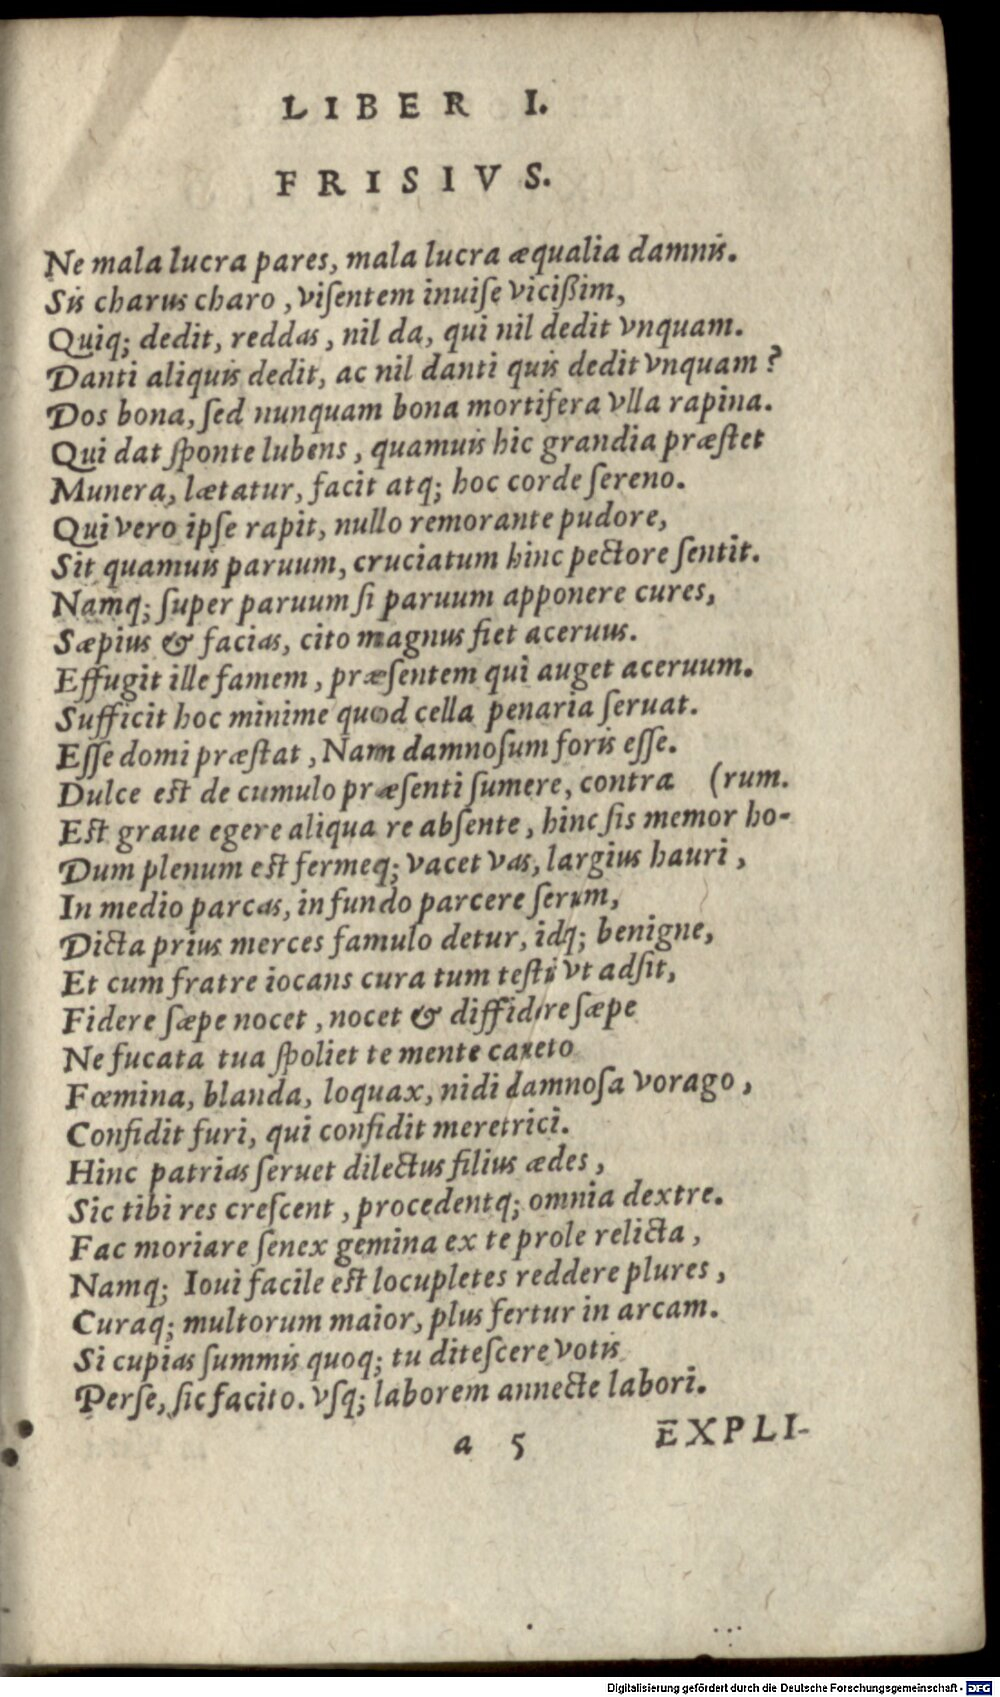 LIBER I.
FRISIVS.
Ne mala lucra pares, mala lucra æqualia damnis.
Sis charus charo, viſentem inuiſe vicißim,
Quiq; dedit, reddas, nil da, qui nil dedit vnquam.
Danti aliquis dedit, ac nil danti quis dedit vnquam?
Dos bona, ſed nunquam bona mortifera vlla rapina.
Qui dat ſponte lubens, quamuis hic grandia præſtet
Munera, lætatur, facit atq; hoc corde ſereno.
Qui vero ipſe rapit, nullo remorante pudore,
Sit quamuis paruum, cruciatum hinc pectore ſentit.
Namq; ſuper paruum ſi paruum apponere cures,
Sæpius & facias, cito magnus fiet aceruus.
Effugit ille famem, præſentem qui auget aceruum.
Sufficit hoc minime quod cella penaria ſeruat.
Eſſe domi præſtat, Nam damnoſum foris eſſe.
Dulce eſt de cumulo præſenti ſumere, contra (rum.
Eſt graue egere aliqua re abſente, hinc ſis memor ho-
Dum plenum eſt fermeq; vacet vas, largius hauri,
In medio parcas, in fundo parcere ſerum,
Dicta prius merces famulo detur, idq; benigne,
Et cum fratre iocans cura tum teſtis vt adſit,
Fidere ſæpe nocet, nocet & diffidere ſæpe
Ne fucata tua ſpoliet te mente caueto
Fœmina, blanda, loquax, nidi damnoſa vorago,
Confidit furi, qui confidit meretrici.
Hinc patrias ſeruet dilectus filius ædes,
Sic tibi res creſcent, procedentq; omnia dextre.
Fac moriare ſenex gemina ex te prole relicta,
Namq; Ioui facile eſt locupletes reddere plures,
Curaq; multorum maior, plus fertur in arcam.
Si cupias ſummis quoq; tu diteſcere votis
Perſe, ſic facito. vſq; laborem annecte labori.
a 5 EXPLI-
Digitalisierung gefördert durch die Deutsche Forschungsgemeinschaft - DFG